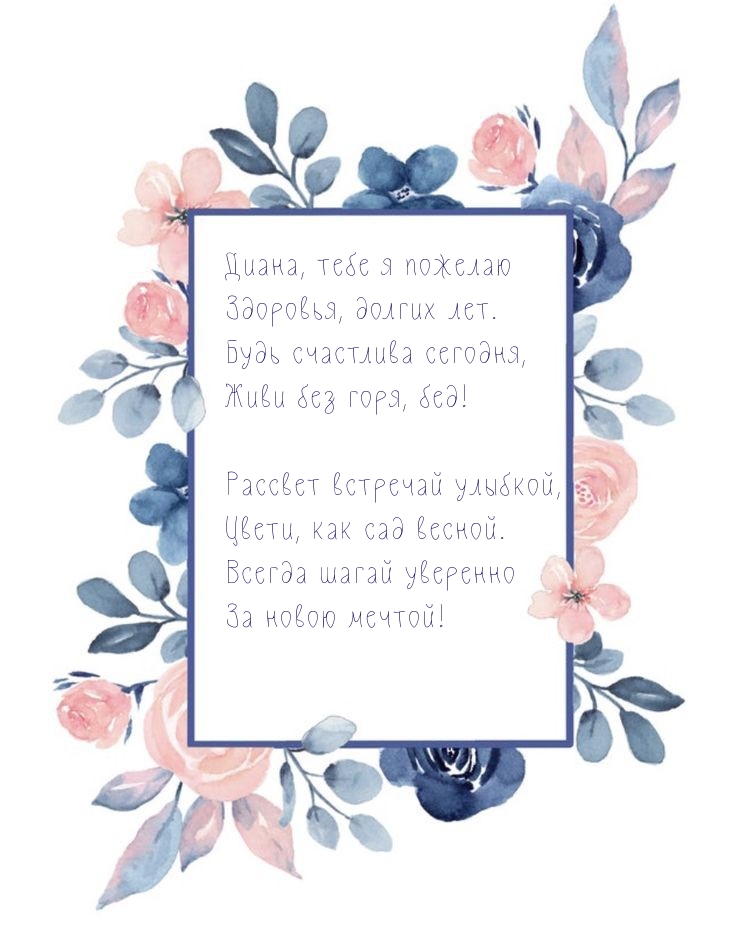 Диана, тебе я пожелаю
Здоровья, долгих лет.
Будь счастлива сегодня,
Живи без горя, бед!
Рассвет встречай улыбкой,
Цвети, как сад весной.
Всегда шагай уверенно
За новою мечтой!